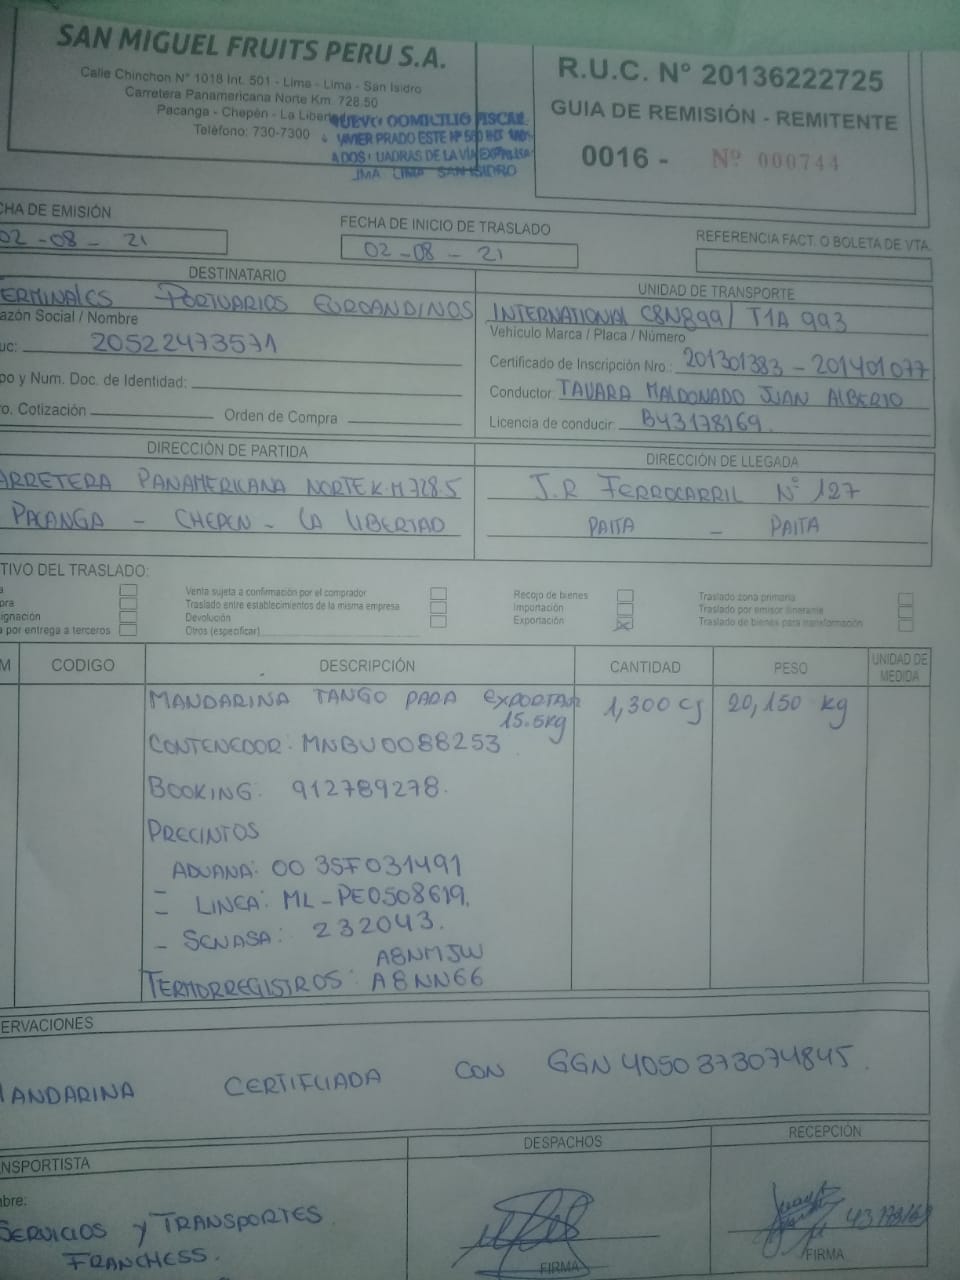 SAN MIGUEL FRUITS PERU S.A.
Calle Chinchon N° 1018 Int. 501 - Lima - Lima - San Isidro
Carretera Panamericana Norte Km. 728.50
Pacanga - Chepén - La
Teléfono: 730-7300
NUEVO DOMICILIO FISCAL
JAVIER PRADO ESTE Nº
UADRAS DE LA VIA EXPRESA
LIMA SAN ISIDRO
R.U.C. N° 20136222725
GUIA DE REMISIÓN - REMITENTE
0016 - Nº 000744
CHA DE EMISIÓN
02 - 08 - 21
FECHA DE INICIO DE TRASLADO
02 - 08 - 21
REFERENCIA FACT. O BOLETA DE VTA.
DESTINATARIO
ERMINALES PORTUARIOS EUROANDINOS
azón Social / Nombre
uc: 20522473571
po y Num. Doc. de Identidad:
ro. Cotización Orden de Compra
UNIDAD DE TRANSPORTE
INTERNATIONAL C8N899/ T1A 993
Vehículo Marca / Placa / Número
Certificado de Inscripción Nro.: 201301383 - 201401077
Conductor: TAVARA MALDONADO JUAN ALBERTO
Licencia de conducir: B43178169
DIRECCIÓN DE PARTIDA
ARRETERA PANAMERICANA NORTE K.M 728.5
PACANGA - CHEPEN - LA LIBERTAD
DIRECCIÓN DE LLEGADA
J.R FERROCARRIL N° 127
PAITA - PAITA
TIVO DEL TRASLADO:
a
pra
signación
a por entrega a terceros
Venta sujeta a confirmación por el comprador
Traslado entre establecimientos de la misma empresa
Devolución
Otros (especificar)
Recojo de bienes
Importación
Exportación X
Traslado zona primaria
Traslado por emisor itinerante
Traslado de bienes para transformación
M CODIGO DESCRIPCIÓN CANTIDAD PESO UNIDAD DE MEDIDA
MANDARINA TANGO PARA EXPORTAR 1,300 cj 20,150 kg
15.5kg
CONTENEDOR: MNBU0088253
BOOKING: 912789278.
PRECINTOS
ADUANA: 00 35F031491
- LINEA: ML-PE0508619.
- SENASA: 232043.
A8NMJW
TERMORREGISTROS: A8NN66
ERVACIONES
MANDARINA CERTIFICADA CON GGN 4050373074845.
NSPORTISTA
mbre:
SERVICIOS Y TRANSPORTES
FRANCHESS.
DESPACHOS
FIRMA
RECEPCIÓN
43178169
FIRMA